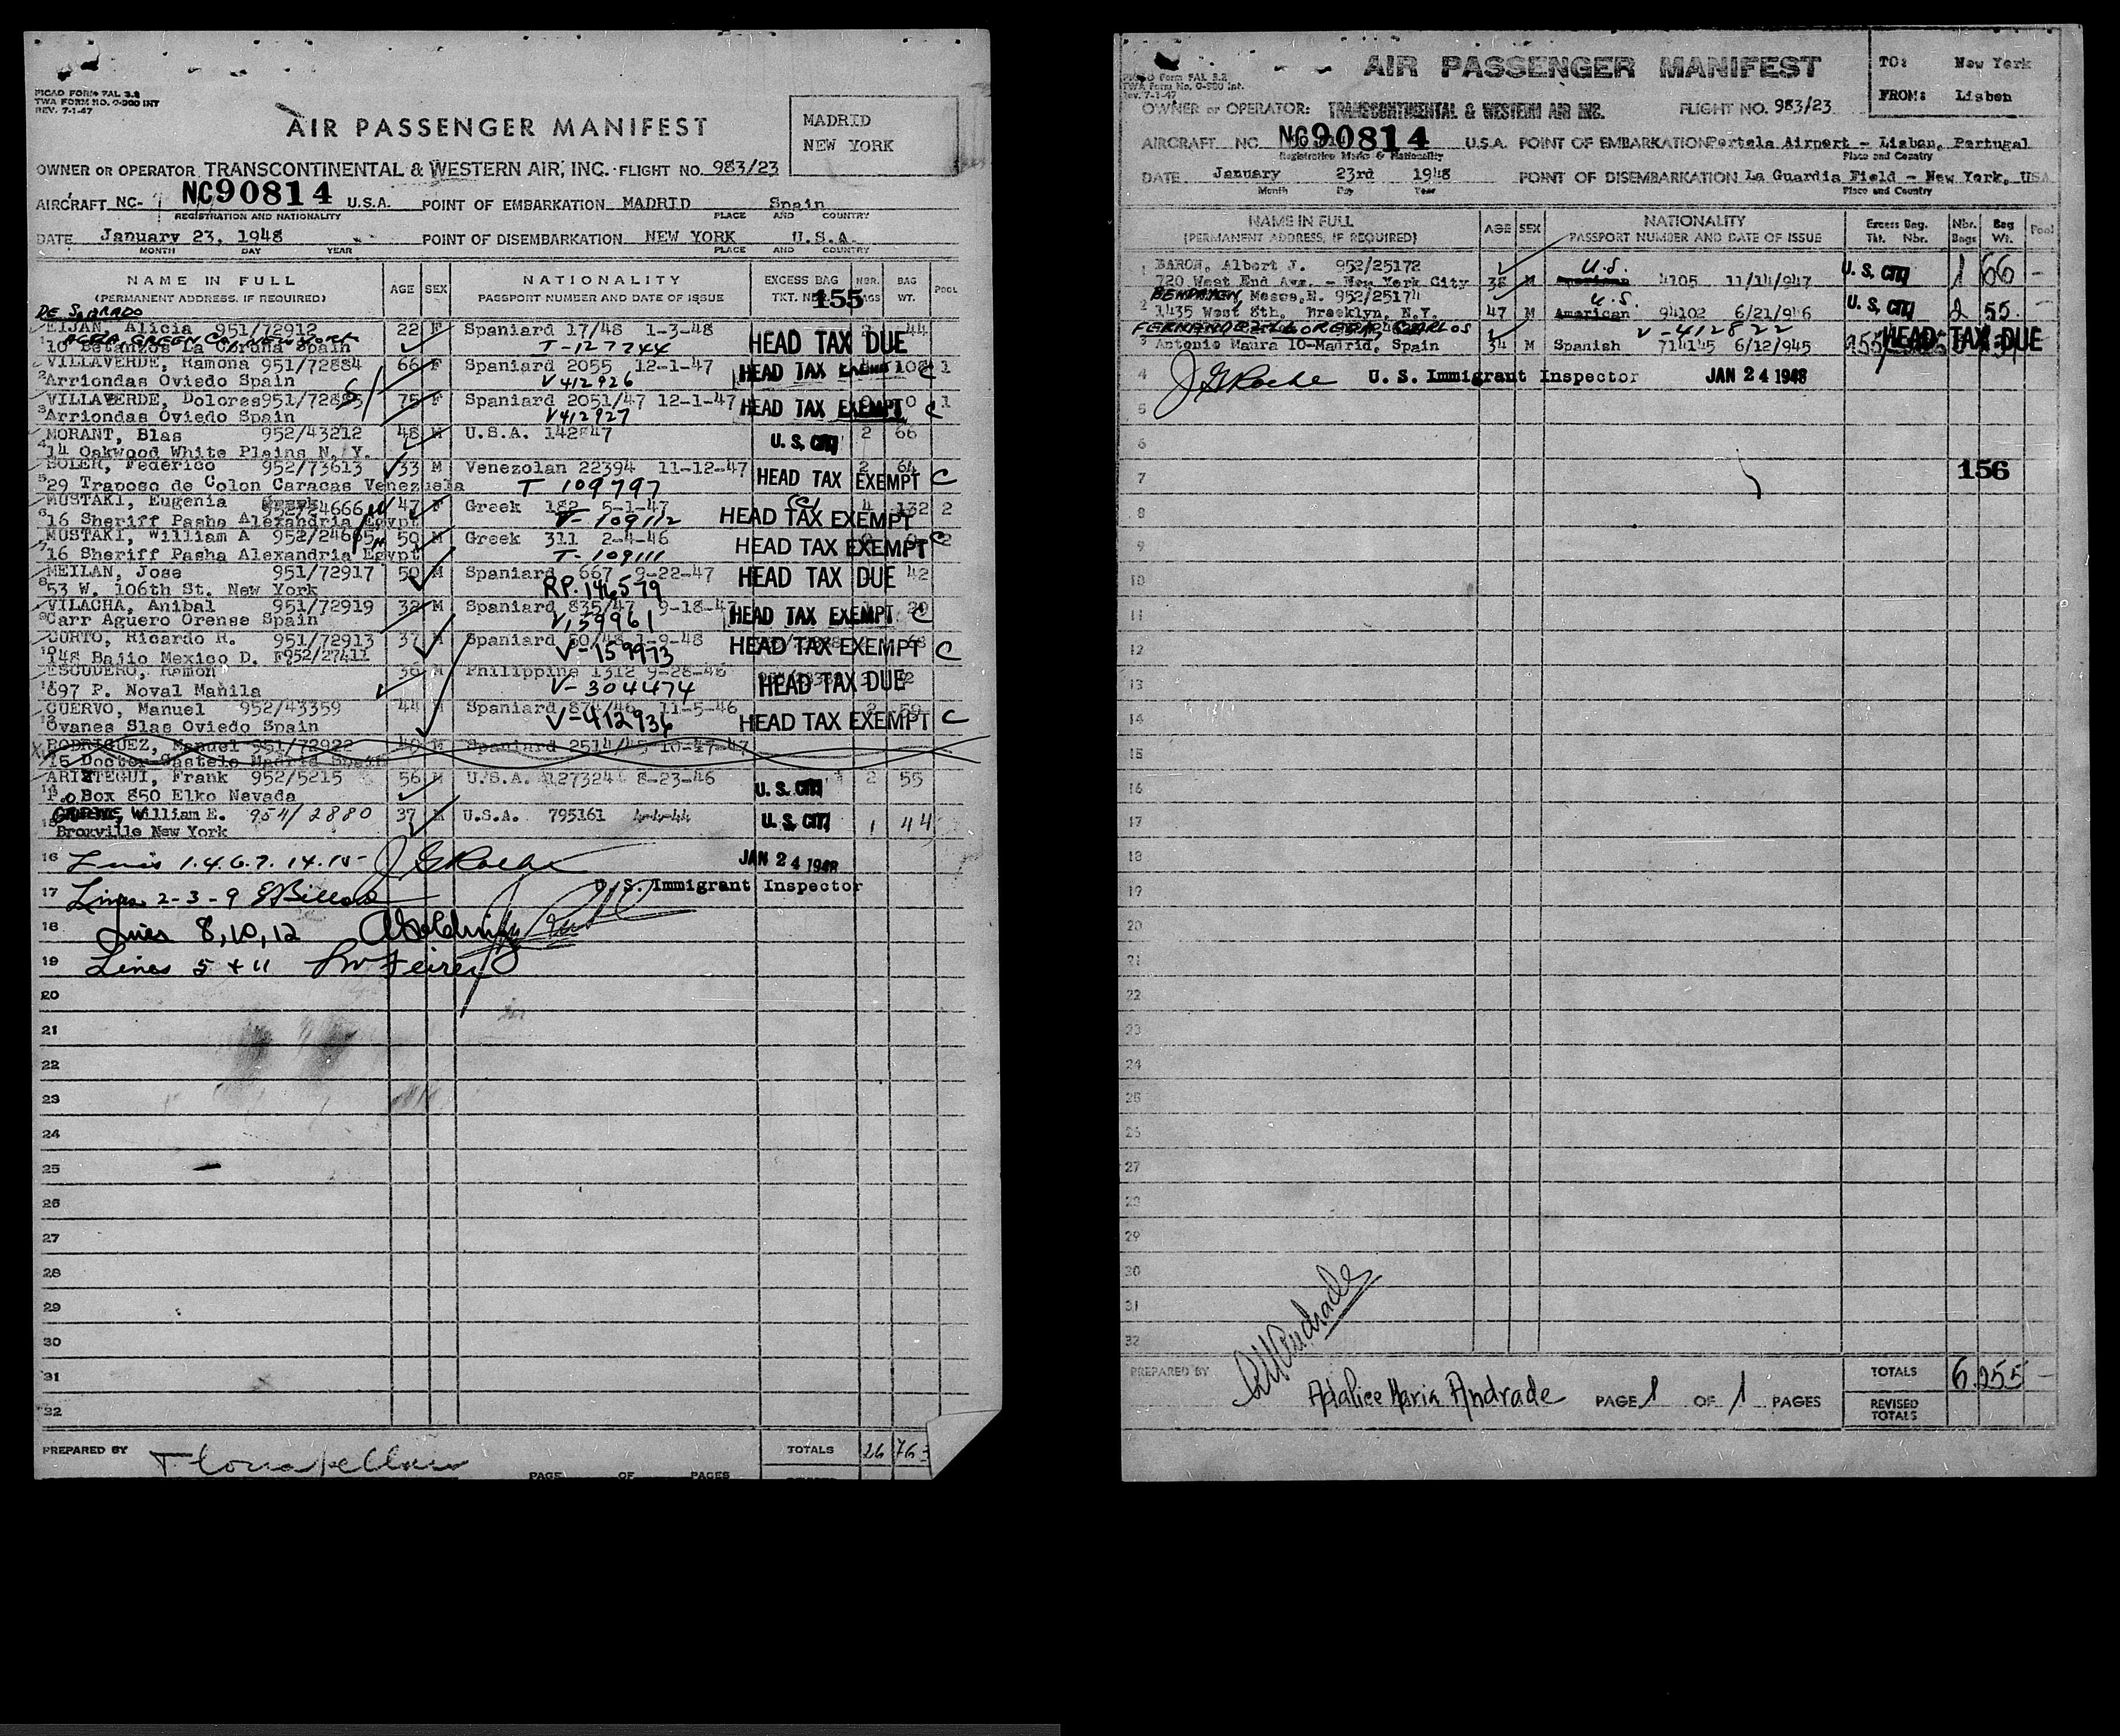 PICAO FORM FAL 3.2
TWA FORM NO. 0-900 INT
REV. 7-1-47
AIR PASSENGER MANIFEST
MADRID
NEW YORK
OWNER OR OPERATOR TRANSCONTINENTAL & WESTERN AIR, INC. FLIGHT NO. 983/23
AIRCRAFT NC- NC90814 U.S.A. POINT OF EMBARKATION MADRID Spain
REGISTRATION AND NATIONALITY PLACE AND COUNTRY
DATE January 23, 1948 POINT OF DISEMBARKATION NEW YORK U.S.A.
MONTH DAY YEAR PLACE AND COUNTRY
NAME IN FULL AGE SEX NATIONALITY EXCESS BAG NBR. BAG POOL
(PERMANENT ADDRESS, IF REQUIRED) PASSPORT NUMBER AND DATE OF ISSUE TKT. 155 WT.
EIJAN, Alicia 951/72912 22 F Spaniard 17/48 1-3-48 44
1 10 Betanzos La Coruna Spain T-127744 HEAD TAX DUE
VILLAVERDE, Ramona 951/72884 66 F Spaniard 2055 12-1-47 HEAD TAX C 1
2 Arriondas Oviedo Spain V412926
VILLAVERDE, Dolores 951/72885 75 F Spaniard 2051/47 12-1-47 HEAD TAX EXEMPT 0 C 1
3 Arriondas Oviedo Spain V412927
MORANT, Blas 952/43212 48 M U.S.A. 142847 U. S. CITI 2 66
4 14 Oakwood White Plains N. Y.
SOLER, Federico 952/73613 33 M Venezolan 22394 11-12-47 2 64
5 29 Traposo de Colon Caracas Venezuela T 109797 HEAD TAX EXEMPT C
MUSTAKI, Eugenia 47 F Greek 182 5-1-47 4 132 2
6 16 Sheriff Pasha Alexandria Egypt V-109112 HEAD TAX EXEMPT
MUSTAKI, William A 952/24665 50 M Greek 311 2-4-46 HEAD TAX EXEMPT C 2
7 16 Sheriff Pasha Alexandria Egypt T-109111
MEILAN, Jose 951/72917 50 M Spaniard 667 9-22-47 HEAD TAX DUE 42
8 53 W. 106th St. New York RP.146579
VILACHA, Anibal 951/72919 32 M Spaniard 835/47 9-18-47 HEAD TAX EXEMPT C
9 Carr Aguero Orense Spain V159961
CURTO, Ricardo R. 951/72913 37 M Spaniard 50/48 1-9-48 HEAD TAX EXEMPT C
10 148 Bajio Mexico D. F 952/27411 V-159973
ESCUDERO, Ramon 36 M Philippine 1312 9-28-46
11 697 P. Noval Manila V-304474 HEAD TAX DUE
CUERVO, Manuel 952/43359 44 M Spaniard 874/46 11-5-46 2 59
12 Ovanes Slas Oviedo Spain V-412936 HEAD TAX EXEMPT C
RODRIGUEZ, Manuel 951/72922 40 M Spaniard
15 Doctor Castelo Madrid Spain
ARIZTEGUI, Frank 952/5215 56 M U.S.A. 127324 8-23-46 2 55
14 P.O Box 850 Elko Nevada U. S. CITI
William E. 954/2880 37 M U.S.A. 795161 4-4-44 U. S. CITI 1 44
15 Bronxville New York
16 Lines 1.4.6.7.14.15- J G Roche JAN 24 1948
17 Lines 2-3-9 U. S. Immigrant Inspector
18 Lines 8,10,12
19 Lines 5 + 11
20
21
22
23
24
25
26
27
28
29
30
31
32
PREPARED BY TOTALS 26 763
PAGE OF PAGES
AIR PASSENGER MANIFEST
TO: New York
FROM: Lisbon
PICAO Form FAL 3.2
TWA Form No. 0-900 Int.
Rev. 7-1-47
OWNER or OPERATOR: TRANSCONTINENTAL & WESTERN AIR INC. FLIGHT NO. 983/23
AIRCRAFT NC NC90814 U.S.A. POINT OF EMBARKATION Portela Airport - Lisbon, Portugal
Registration Marks & Nationality Place and Country
DATE January 23rd 1948 POINT OF DISEMBARKATION La Guardia Field - New York, USA
Month Day Year Place and Country
NAME IN FULL AGE SEX NATIONALITY Excess Bag. Nbr. Bag Pool
(PERMANENT ADDRESS, IF REQUIRED) PASSPORT NUMBER AND DATE OF ISSUE Tkt. Nbr. Bags Wt.
1 BARON, Albert J. 952/25172 U.S.
720 West End Ave. - New York City 38 M 4105 11/14/947 U. S. CITI 1 66 -
2 Moses, E. 952/25174 U.S.
1435 West 8th, Brooklyn, N.Y. 47 M American 94102 6/21/946 U. S. CITI 2 55
FERNANDEZ CARLOS V-412822
3 Antonio Maura 10-Madrid, Spain 34 M Spanish 714145 6/12/945 HEAD TAX DUE
4 J G Roche U. S. Immigrant Inspector JAN 24 1948
5
6
7 156
8
9
10
11
12
13
14
15
16
17
18
19
20
21
22
23
24
25
26
27
28
29
30
31
32
PREPARED BY Adalice Maria Andrade PAGE 1 OF 1 PAGES TOTALS 6 255 -
REVISED TOTALS